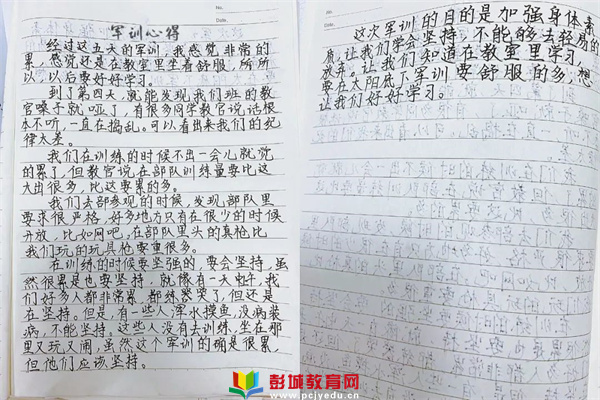 军训心得
经过这五天的军训,我感觉非常的
累,感觉还是在教室里坐着舒服,所所
以,以后要好好学习。
到了第四天,就能发现我们班的教
官嗓子就哑了,有很多同学教官说话根
本不听,一直在捣乱。可以看出来我们的纪
律太差。
我们在训练的时候不出一会儿就觉
的累了,但教官说在部队训练量要比这
大出很多,比这要累的多。
我们去部参观的时候,发现部队里
要求很严格,好多地方只有在很少的时候
开放,比如网吧,在部队里头的真枪比
我们玩的玩具枪要重很多。
在训练的时候要坚强的,要会坚持,虽
然很累是也要坚持,就像有一天
们好多人都非常累,都练哭了,但还是
在坚持。但是,有一些人浑水摸鱼,没病装
病,不能坚持。这些人没有去训练,坐在那
里又玩又闹,虽然这个军训的确是很累,
但他们应该坚持。
这次军训的目的是加强身体素
质,让我们学会坚持,不能够去轻易的
放弃。让我们知道在教室里学习,
要在太阳底下军训要舒服的多,想
让我们好好学习。
Date.
No.
Date.
彭城教育网
www.pcjyedu.cn